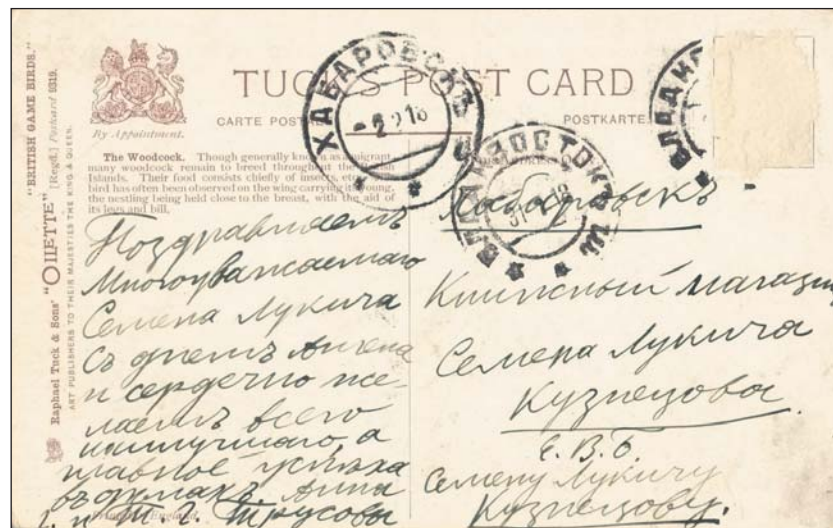 "BRITISH GAME BIRDS."
Raphael Tuck & Sons' "OILETTE" [Regd.] Postcard 9319.
ART PUBLISHERS TO THEIR MAJESTIES THE KING & QUEEN.
By Appointment.
TUCK'S POST CARD
CARTE POSTALE
POSTKARTE.
The Woodcock. Though generally known as a migrant,
many woodcock remain to breed throughout the British
Islands. Their food consists chiefly of insects, etc.
bird has often been observed on the wing carrying its young,
the nestling being held close to the breast, with the aid of
its legs and bill.
ХАБАРОВСКЪ
2 2 18
ВЛАДИВОСТОКЪ
31 1 18
ВЛАДИВО
Поздравляемъ
Многоуважаемаго
Семена Лукича
Съ днемъ Ангела
и сердечно же-
лаемъ всего
наилучшаго, а
главное успѣха
въ дѣлахъ. Анна
и Т. Г. Трусовы
Printed in England.
Хабаровскъ
Книжный магазин
Семена Лукича
Кузнецова
Е. В. Б.
Семену Лукичу
Кузнецову.